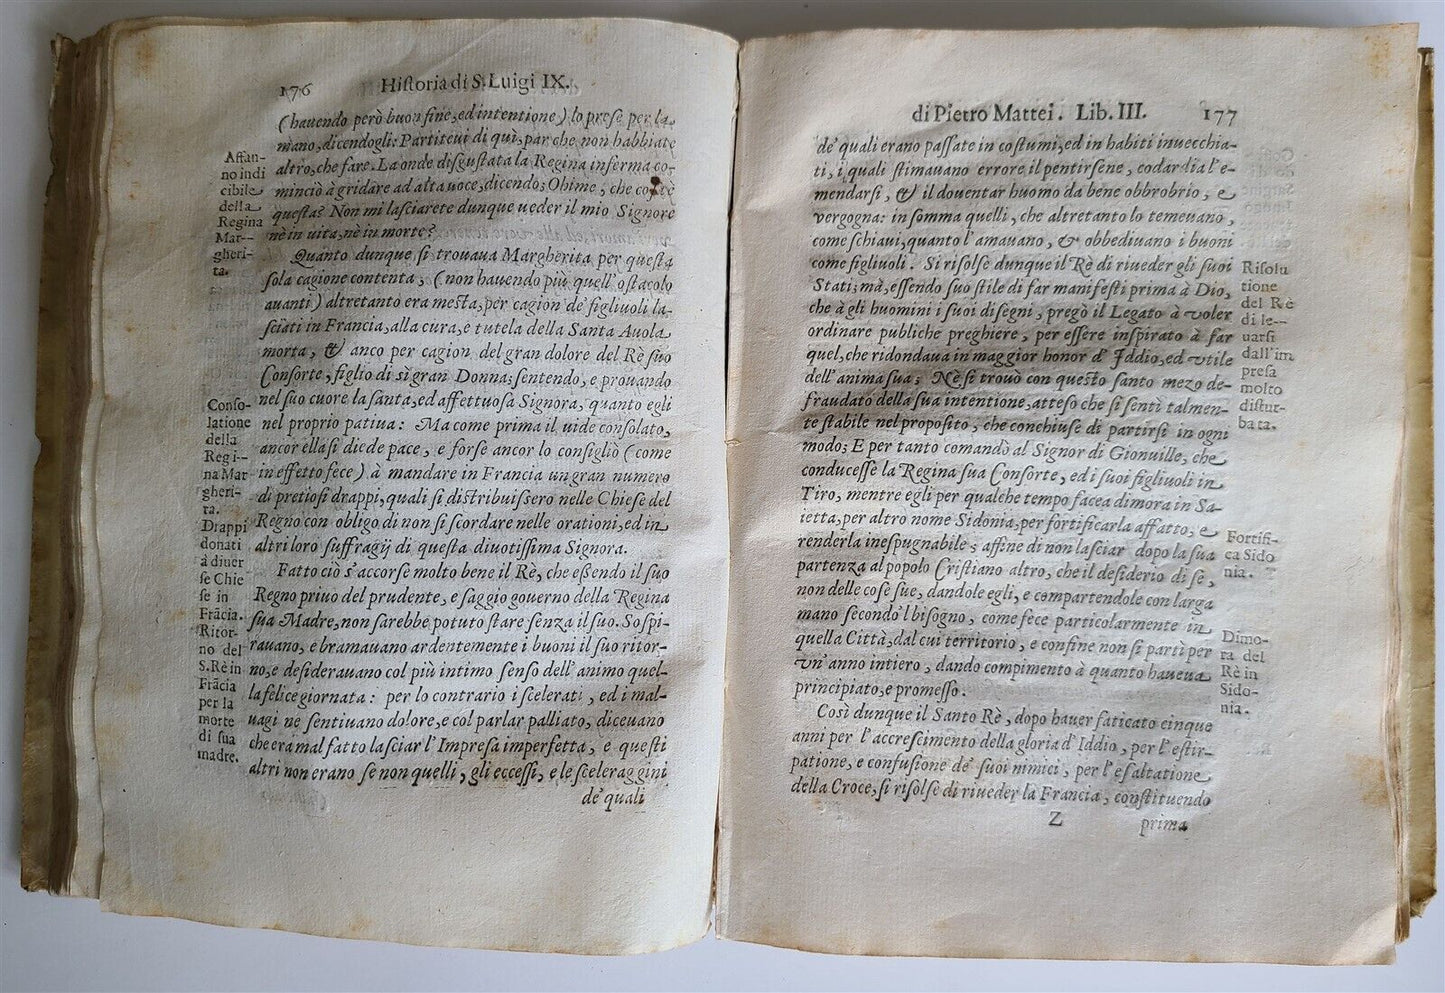 176 Hiſtoria di S. Luigi IX.
(hauendo però buon fine, ed intentione) lo preſe per la
mano, dicendogli: Partiteui di quì, par che non habbiate
altro, che fare. La onde diſguſtata la Regina inferma co-
minciò à gridare ad alta uoce, dicendo; Ohime, che coſa è
queſta? Non mi laſciarete dunque ueder il mio Signore
nè in uita, nè in morte?
Quanto dunque ſi trouaua Margherita per queſta
ſola cagione contenta, (non hauendo più quell' oſtacolo
auanti) altretanto era meſta, per cagion de' figliuoli la-
ſciati in Francia, alla cura, e tutela della Santa Auola
morta, & anco per cagion del gran dolore del Rè ſuo
Conſorte, figlio di sì gran Donna; ſentendo, e prouando
nel ſuo cuore la ſanta, ed affettuoſa Signora, quanto egli
nel proprio patiua: Ma come prima il uide conſolato,
ancor ella ſi diede pace, e forſe ancor lo conſigliò (come
in effetto fece) à mandare in Francia un gran numero
di pretioſi drappi, quali ſi diſtribuiſſero nelle Chieſe del
Regno con obligo di non ſi ſcordare nelle orationi, ed in
altri loro ſuffragij di queſta diuotiſſima Signora.
Fatto ciò s' accorſe molto bene il Rè, che eſſendo il ſuo
Regno priuo del prudente, e ſaggio gouerno della Regina
ſua Madre, non ſarebbe potuto ſtare ſenza il ſuo. Soſpi-
rauano, e bramauano ardentemente i buoni il ſuo ritor-
no, e deſiderauano col più intimo ſenſo dell' animo quel-
la felice giornata: per lo contrario i ſcelerati, ed i mal-
uagi ne ſentiuano dolore, e col parlar palliato, diceuano
che era mal fatto laſciar l' Impreſa imperfetta, e queſti
altri non erano ſe non quelli, gli ecceſſi, e le ſceleraggini
de' quali
Affan-
no indi
cibile
della
Regina
Mar-
gheri-
ta.
Conſo-
latione
della
Regi-
na Mar
gheri-
ta.
Drappi
donati
à diuer
ſe Chie
ſe in
Frãcia.
Ritor-
no del
S. Rè in
Frãcia
per la
morte
di ſua
madre.
di Pietro Mattei. Lib. III. 177
de' quali erano paſſate in coſtumi, ed in habiti inuecchia-
ti, i quali ſtimauano errore il pentirſene, codardia l' e-
mendarſi, & il douentar huomo da bene obbrobrio, e
vergogna: in ſomma quelli, che altretanto lo temeuano,
come ſchiaui, quanto l' amauano, & obbediuano i buoni
come figliuoli. Si riſolſe dunque il Rè di riueder gli ſuoi
Stati; mà, eſſendo ſuo ſtile di far manifeſti prima à Dio,
che à gli huomini i ſuoi diſegni, pregò il Legato à voler
ordinare publiche preghiere, per eſſere inſpirato à far
quel, che ridondaua in maggior honor d' Iddio, ed vtile
dell' anima ſua; Nè ſi trouò con queſto ſanto mezo de-
fraudato della ſua intentione, atteſo che ſi ſentì talmen-
te ſtabile nel propoſito, che conchiuſe di partirſi in ogni
modo; E per tanto comandò al Signor di Gionuille, che
conduceſſe la Regina ſua Conſorte, ed i ſuoi figliuoli in
Tiro, mentre egli per qualche tempo facea dimora in Sa-
ietta, per altro nome Sidonia, per fortificarla affatto, e
renderla ineſpugnabile; affine di non laſciar dopo la ſua
partenza al popolo Criſtiano altro, che il deſiderio di ſe,
non delle coſe ſue, dandole egli, e compartendole con larga
mano ſecondo 'l biſogno, come fece particolarmente in
quella Città, dal cui territorio, e confine non ſi partì per
vn' anno intiero, dando compimento à quanto haueua
principiato, e promeſſo.
Così dunque il Santo Rè, dopo hauer faticato cinque
anni per l' accreſcimento della gloria d' Iddio, per l' eſtir-
patione, e confuſione de' ſuoi nimici, per l' eſaltatione
della Croce, ſi riſolſe di riueder la Francia, conſtituendo
Z prima
Riſolu
tione
del Rè
di le-
uarſi
dall' im
preſa
molto
diſtur-
bata.
Fortifi-
ca Sido
nia.
Dimo-
ra del
Rè in
Sido-
nia.